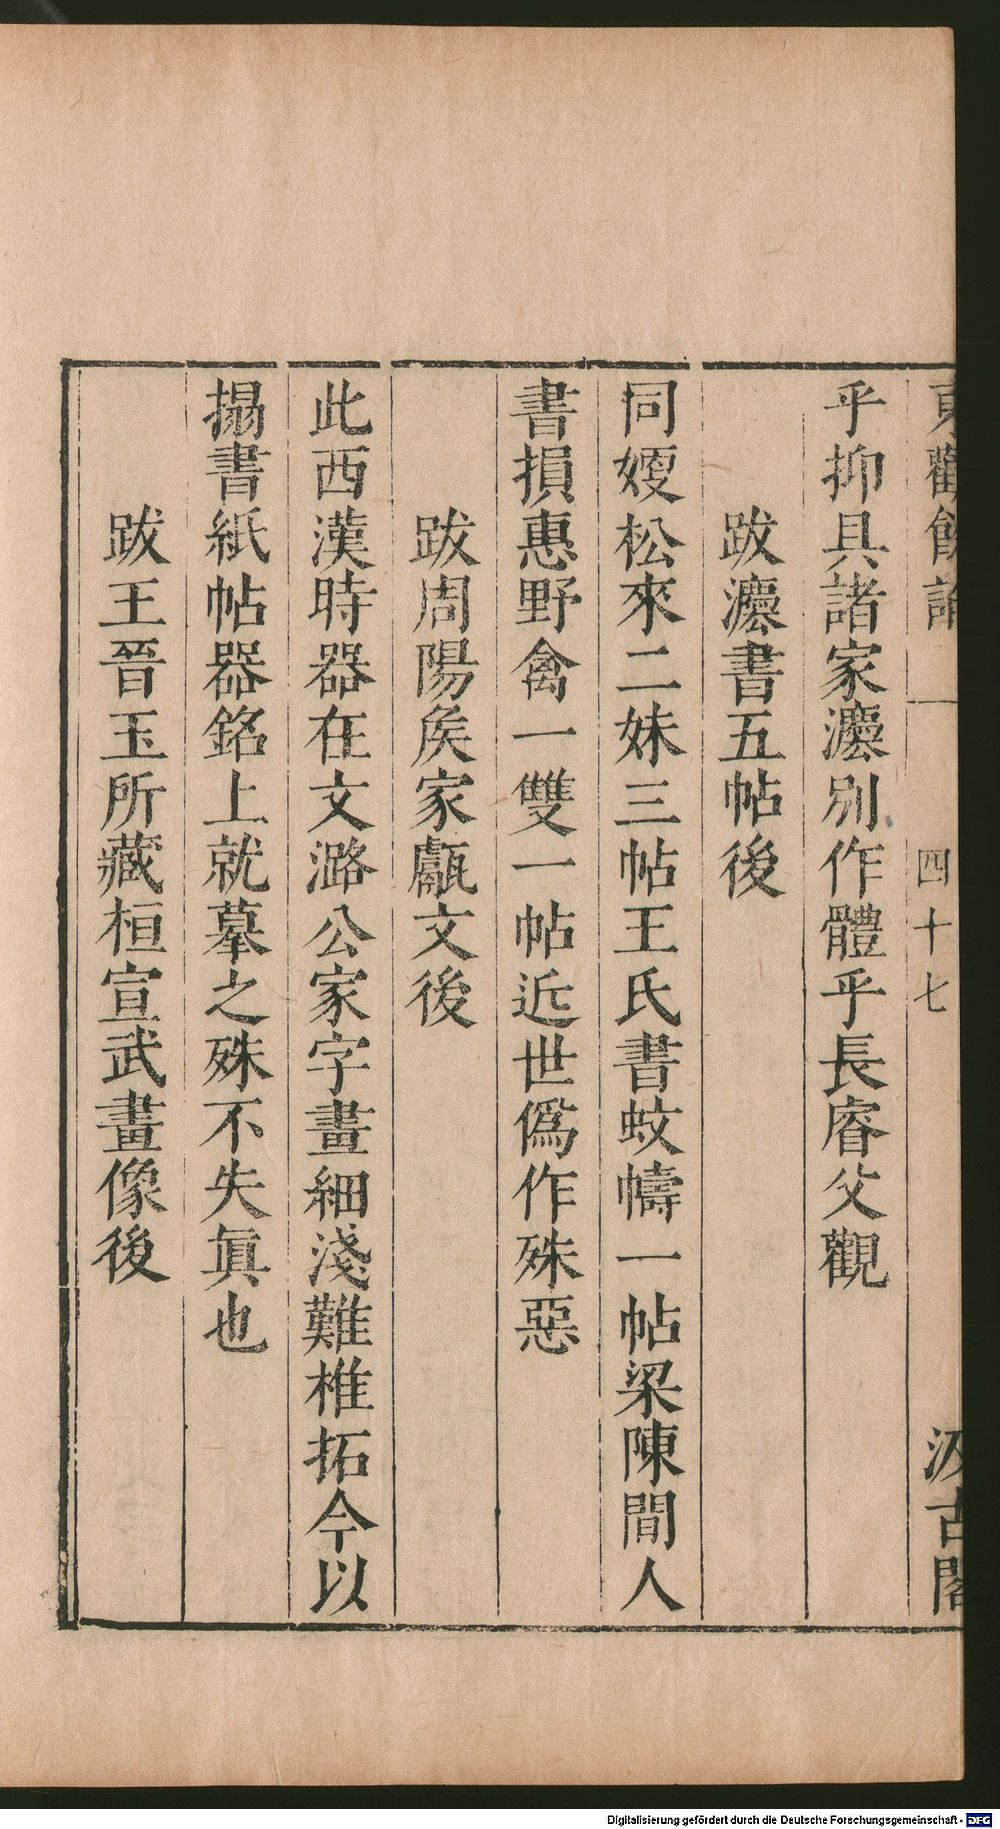 東觀餘論 一 四十七 汲古閣
乎抑具諸家灋別作體乎長睿父觀
跋灋書五帖後
同嫂松來二妹三帖王氏書蚊幬一帖梁陳間人
書損惠野禽一雙一帖近世僞作殊惡
跋周陽矦家甗文後
此西漢時器在文潞公家字畫細淺難椎拓今以
搨書紙帖器銘上就摹之殊不失眞也
跋王晉玉所藏桓宣武畫像後
Digitalisierung gefördert durch die Deutsche Forschungsgemeinschaft - DFG